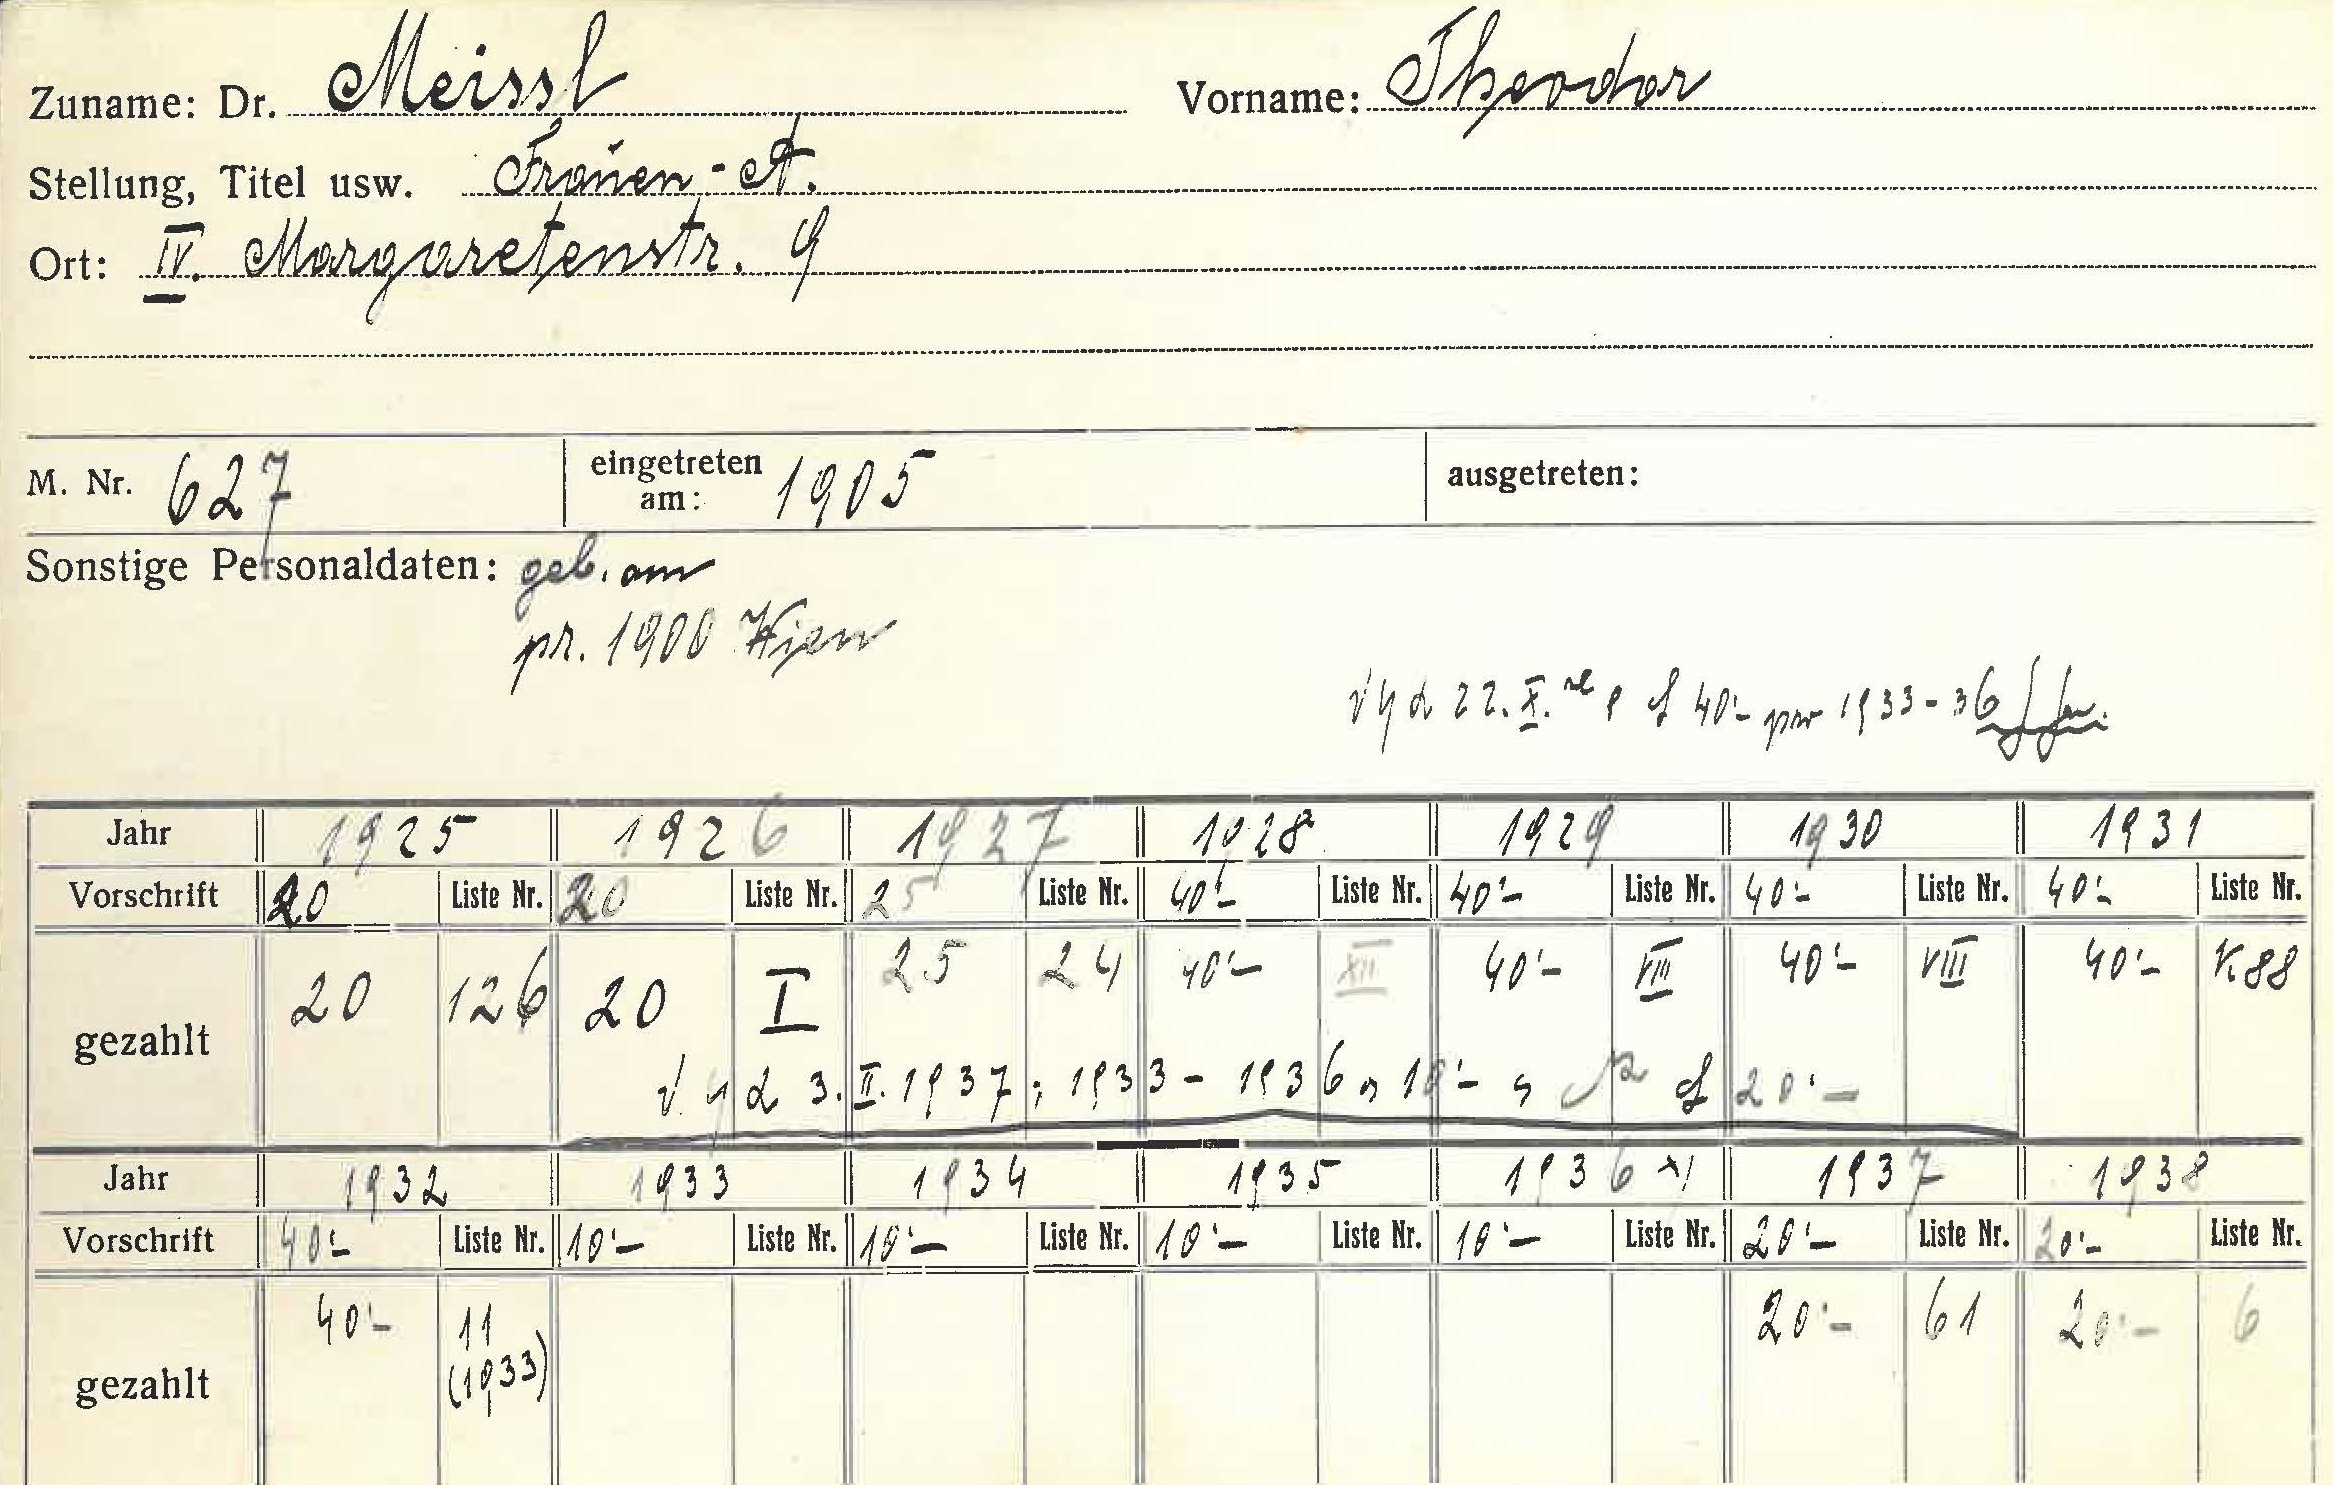 Zuname: Dr. Meissl Vorname: Theodor
Stellung, Titel usw. Frauen-A.
Ort: IV. Margaretenstr. 9
M. Nr. 627 eingetreten am: 1905 ausgetreten:
Sonstige Personaldaten: geb. am
pr. 1900 Wien
22. X. 40'- pro 1933-36
Jahr 1925 1926 1927 1928 1929 1930 1931
Vorschrift 20 Liste Nr. 20 Liste Nr. 25 Liste Nr. 40'- Liste Nr. 40'- Liste Nr. 40'- Liste Nr. 40'- Liste Nr.
gezahlt 20 126 20 I 25 24 40'- XII 40'- VIII 40'- VIII 40'- K.88
3. II. 1937; 1933-1936 10'- 20'-
Jahr 1932 1933 1934 1935 1936 1937 1938
Vorschrift 40'- Liste Nr. 10'- Liste Nr. 10'- Liste Nr. 10'- Liste Nr. 10'- Liste Nr. 20'- Liste Nr. 20'- Liste Nr.
gezahlt 40'- 11 (1933) 20'- 61 20'- 6